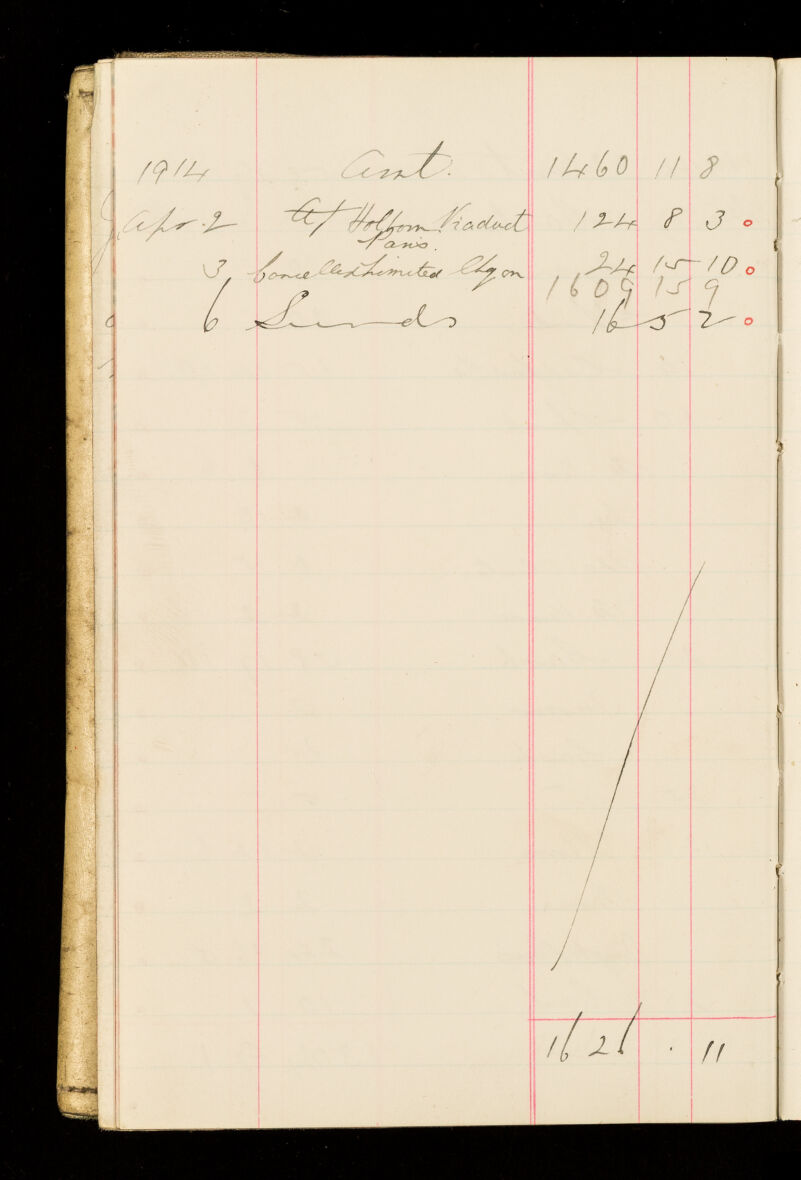 1914 Amt. 1460 11 8
Apr. 2 A/ Holborn Viaduct 124 8 3 o
Pans.
3 Cancelled Limited Chq on 24 15 10 o
1609 15 9
6 Sunds 16 5 2 o
1626 . 11